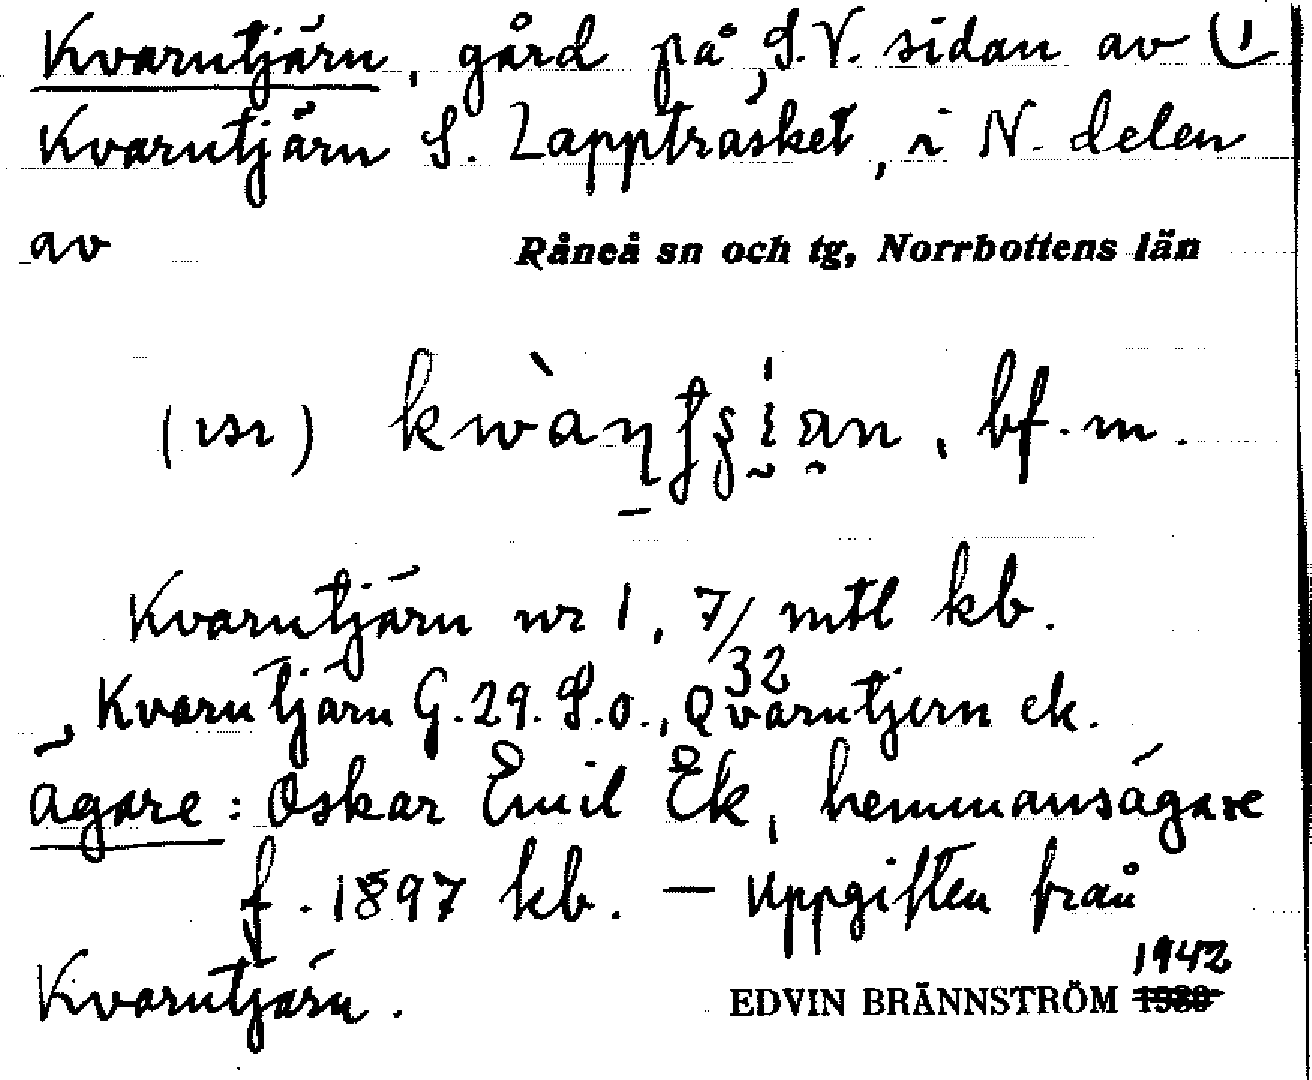 Kvarntjärn, gård på S.V. sidan av
Kvarntjärn S. Lappträsket, i N. delen
av Råneå sn och tg, Norrbottens län
bf. m.
Kvarntjärn nr 1, 7/32 mtl kb.
Kvarntjärn G. 29. S.o., Qvarntjern ek.
ägare: Oskar Emil Ek, hemmansägare
f. 1897 kb. — Uppgiften från
Kvarntjärn.
1942
EDVIN BRÄNNSTRÖM